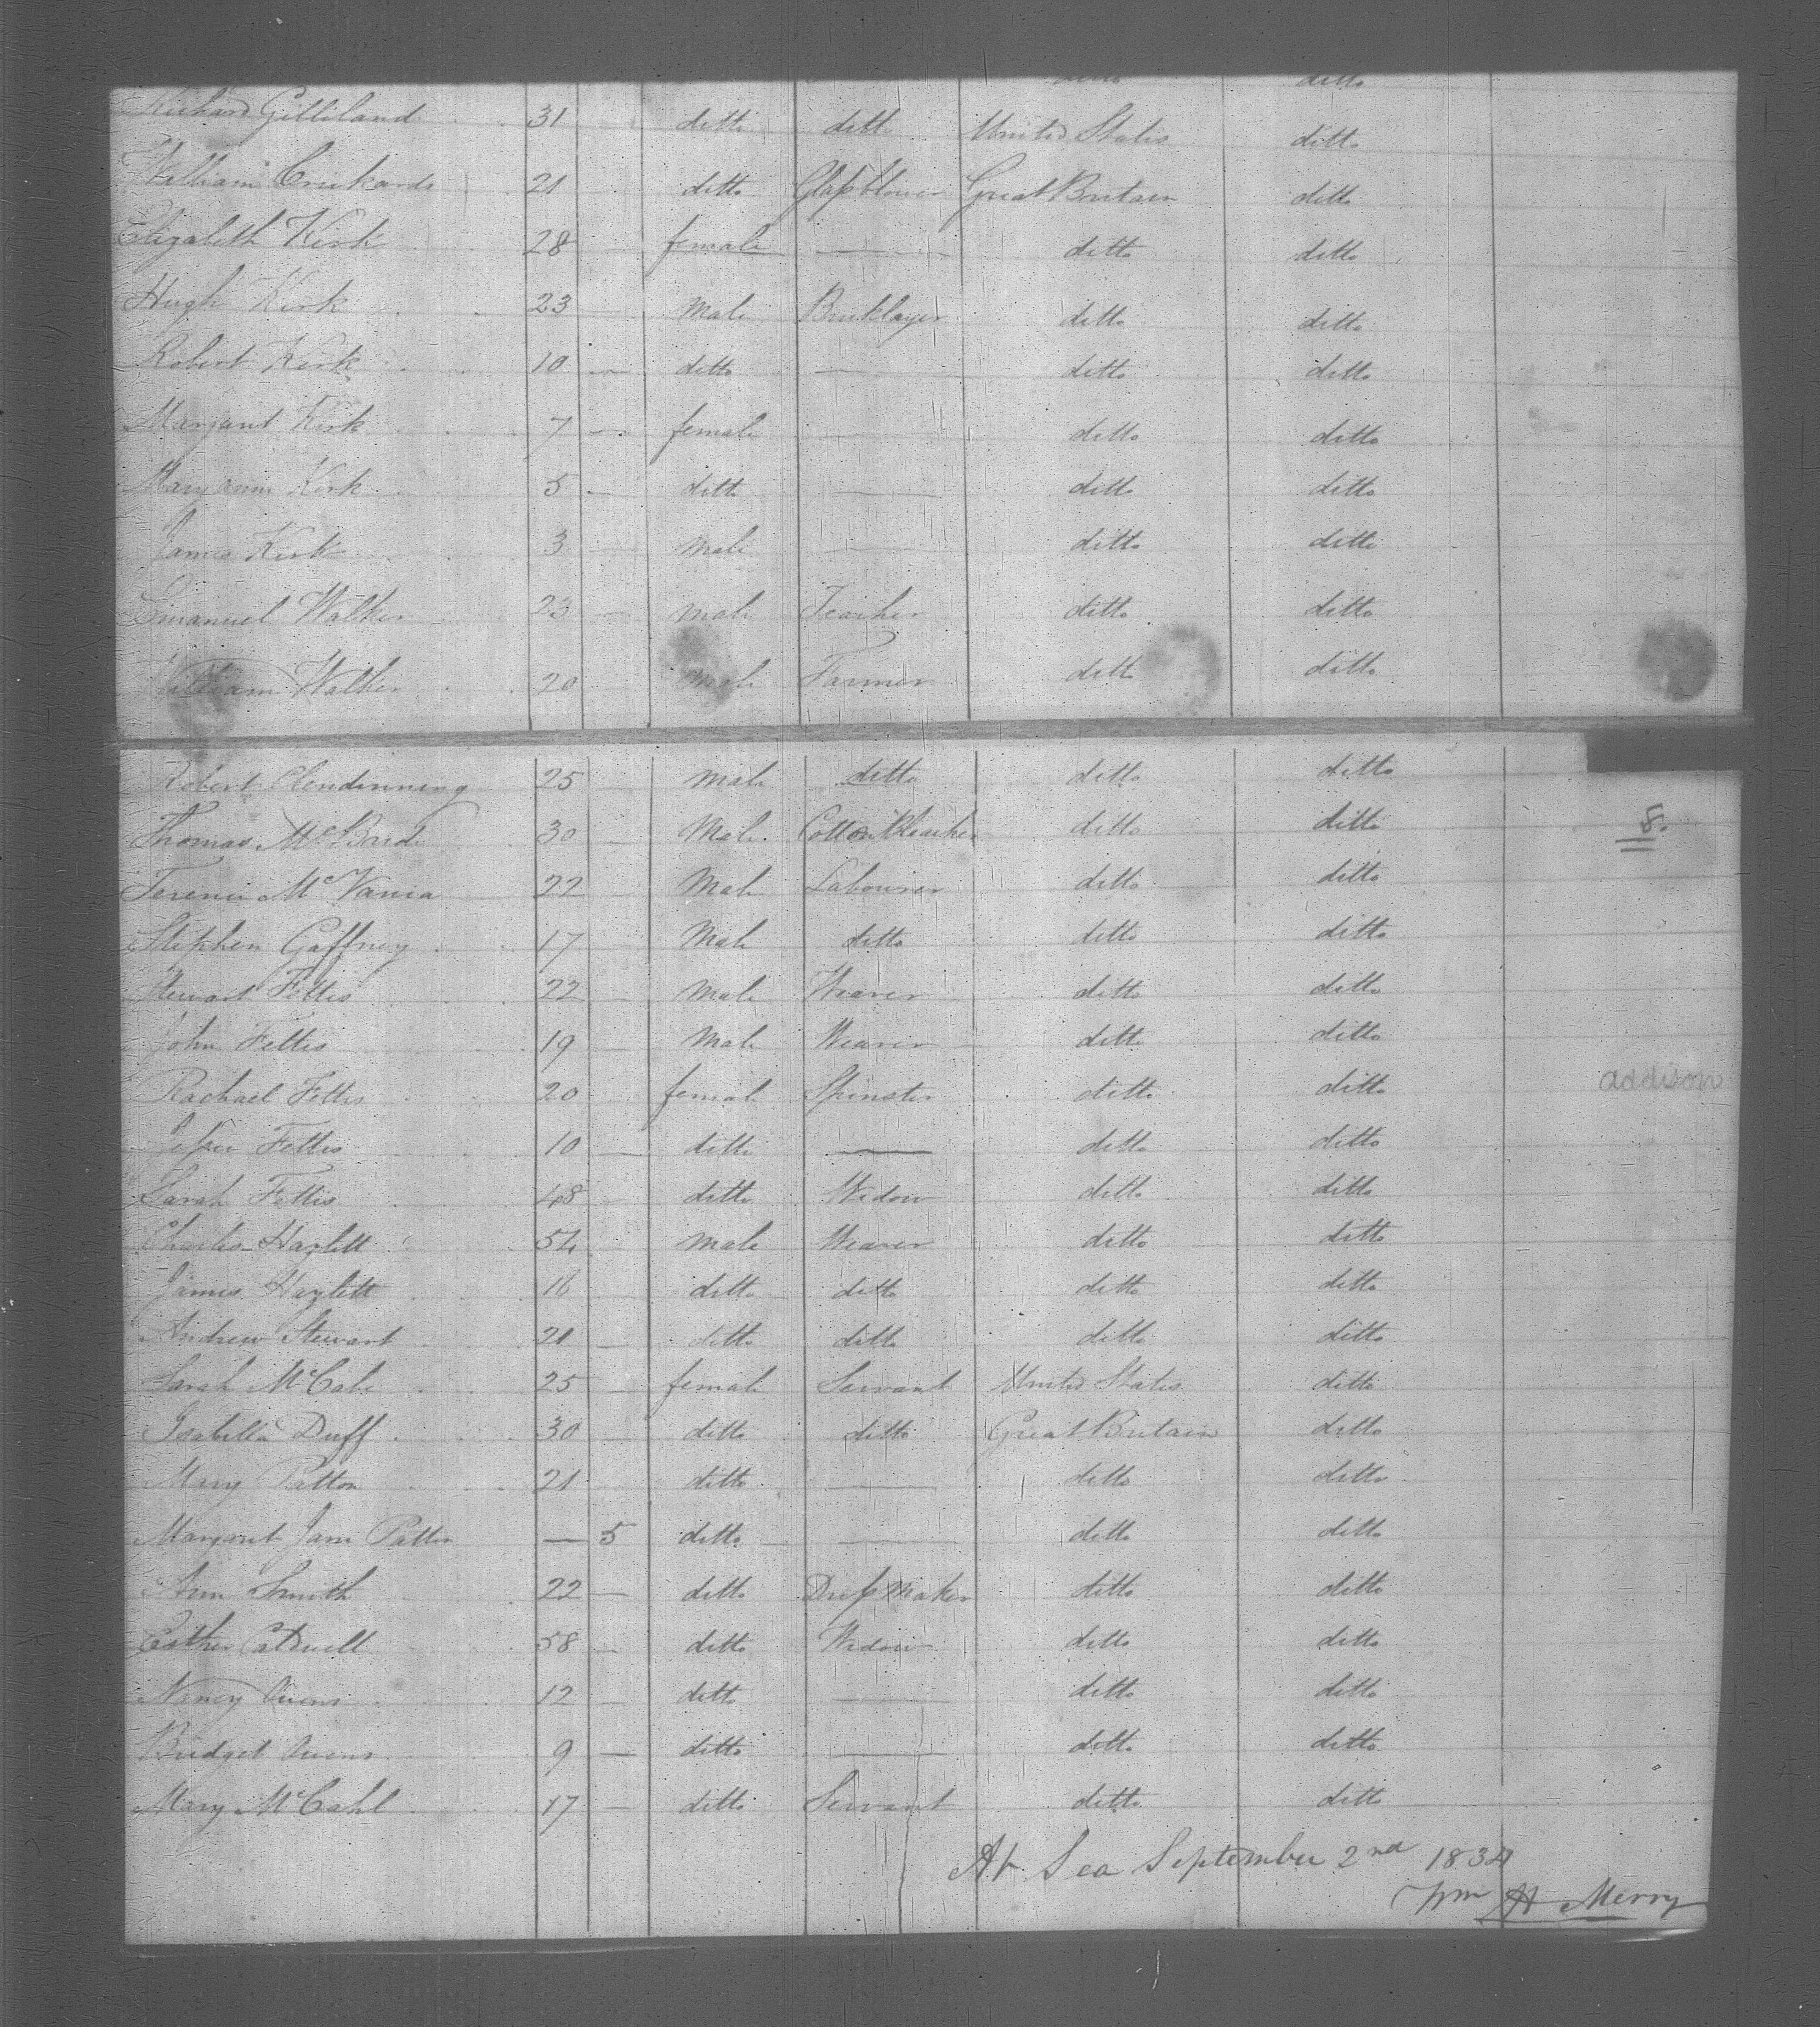 ditto ditto
Richard Gilliland 31 ditto ditto United States ditto
William Crukards 21 ditto Glass blower Great Britain ditto
Elizabeth Kirk 28 — female — ditto ditto
Hugh Kirk 23 — Male Bricklayer ditto ditto
Robert Kirk 10 — ditto — ditto ditto
Margaret Kirk 7 — female — ditto ditto
Mary ann Kirk 5 — ditto — ditto ditto
James Kirk 3 — Male — ditto ditto
Emanuel Walker 23 — male Teacher ditto ditto
William Walker 20 Male Farmer ditto ditto
Robert Clendinning 25 — Male ditto ditto ditto
Thomas McBride 30 — Male Cotton Bleacher ditto ditto 8.
Terence McVania 22 — Male Labourer ditto ditto
Stephen Gaffney 17 — Male ditto ditto ditto
Stewart Fettis 22 — Male Weaver ditto ditto
John Fettis 19 — Male Weaver ditto ditto
Rachael Fettis 20 — female Spinster ditto ditto addison
Jessie Fettis 10 — ditto — ditto ditto
Sarah Fettis 48 — ditto Widow ditto ditto
Charles Hazlett 54 — Male Weaver ditto ditto
James Hazlett 16 — ditto ditto ditto ditto
Andrew Stewart 21 — ditto ditto ditto ditto
Sarah McCabe 25 — female Servant United States ditto
Isabella Duff 30 — ditto ditto Great Britain ditto
Mary Patton 21 ditto — ditto ditto
Margaret Jane Patton — 5 ditto — ditto ditto
Ann Smith 22 — ditto Dress Maker ditto ditto
Esther Caldwell 58 — ditto Widow ditto ditto
Nancy Owens 12 — ditto — ditto ditto
Bridget Owens 9 — ditto — ditto ditto
Mary McCahl 17 — ditto Servant ditto ditto
At Sea September 2nd 1834
Wm H Merry